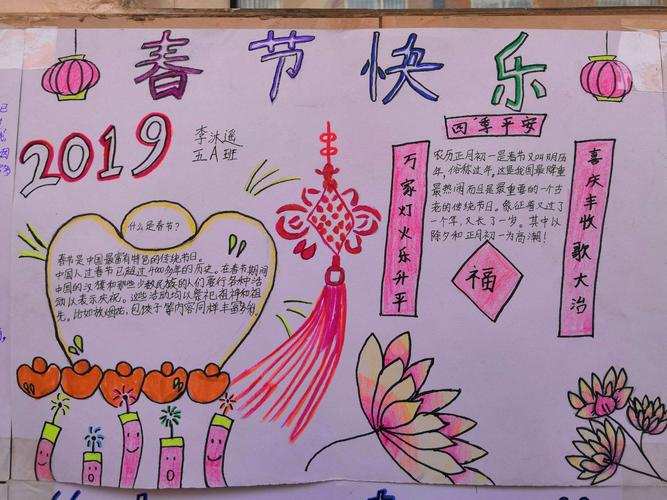 春节快乐
2019
李沐遥
五A班
四季平安
万家灯火乐升平
农历正月初一是春节又叫阴历
年，俗称过年。这是我国最隆重
最热闹而且是最重要的一个古
老的传统节日。象征着又过了
一个年，又长了一岁。其中以
除夕和正月初一为高潮！
喜庆丰收歌大治
福
什么是春节？
春节是中国最富有特色的传统节日。
中国人过春节已超过4000多年的历史。在春节期间
中国的汉族和那些少数民族的人们要行各种活
动以表示庆祝。这些活动均以祭祀祖神和祖
先。比如放烟花，包饺子等内容同样丰富多彩。